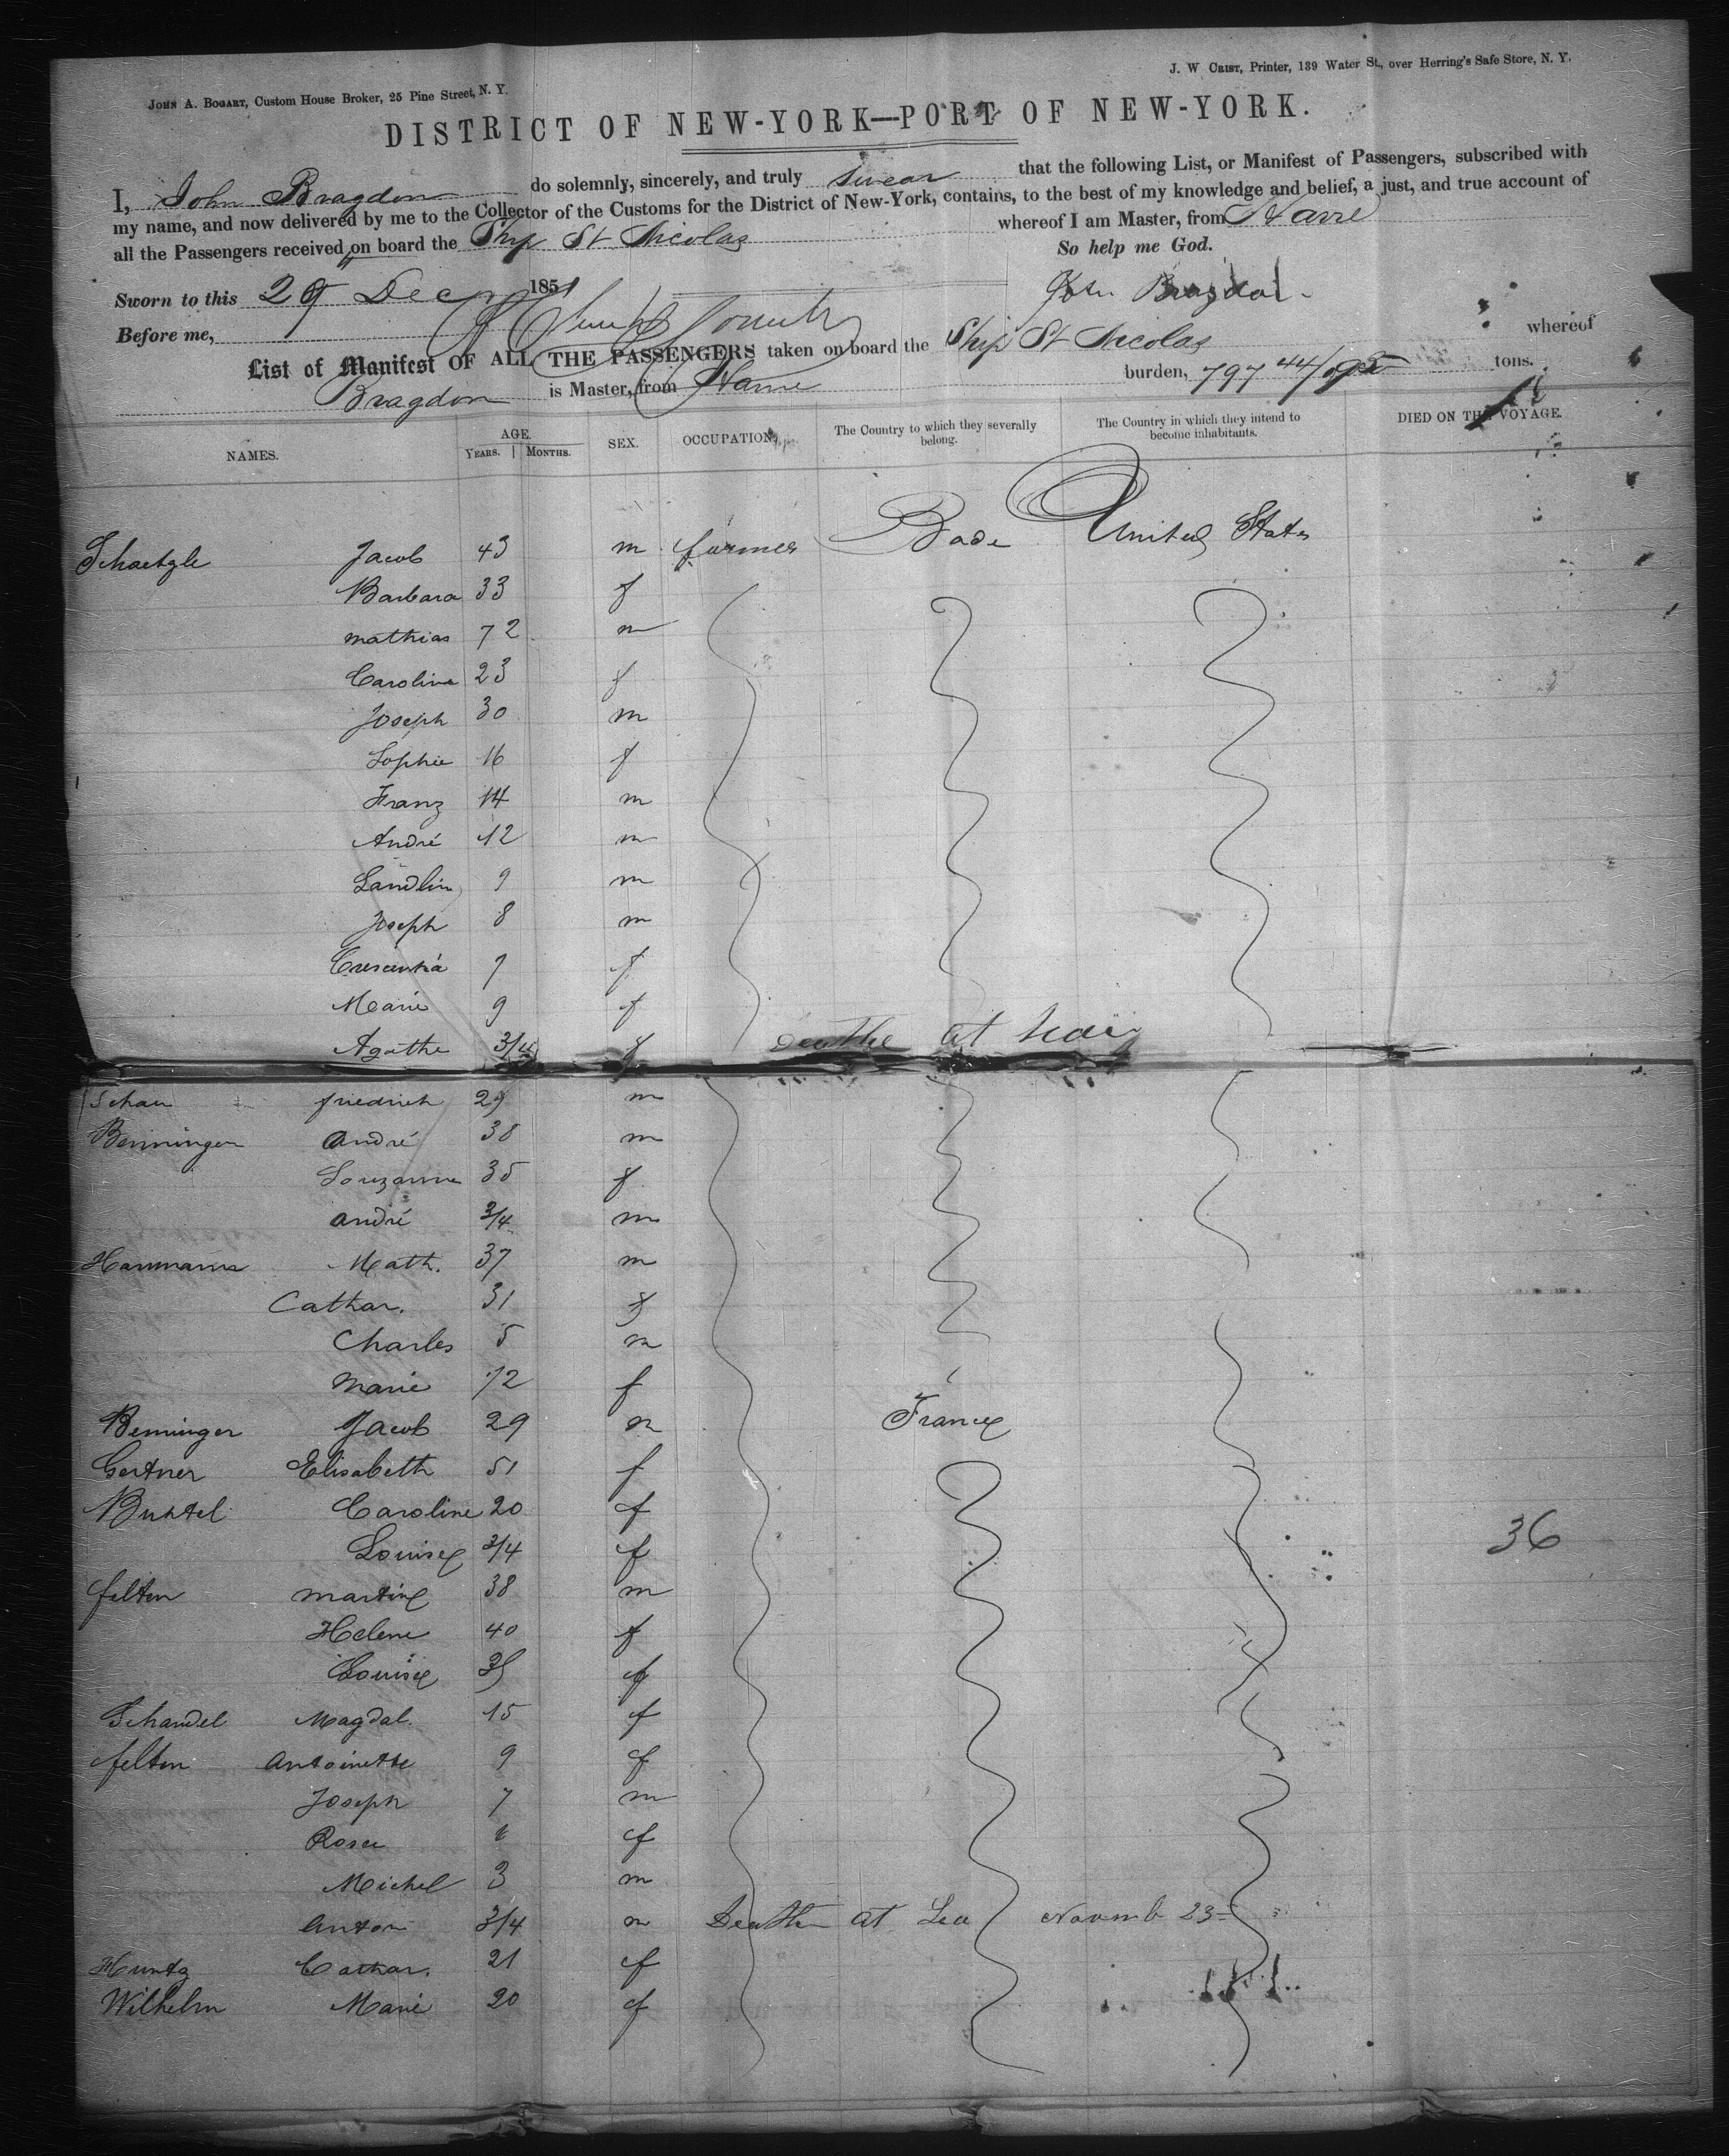 JOHN A. BOGART, Custom House Broker, 25 Pine Street, N. Y.
J. W CRIST, Printer, 139 Water St., over Herring's Safe Store, N. Y.
DISTRICT OF NEW-YORK—PORT OF NEW-YORK.
I, John Bragdon do solemnly, sincerely, and truly swear that the following List, or Manifest of Passengers, subscribed with
my name, and now delivered by me to the Collector of the Customs for the District of New-York, contains, to the best of my knowledge and belief, a just, and true account of
all the Passengers received on board the Ship St Nicolas whereof I am Master, from Havre
So help me God.
Sworn to this 29 Decr 1851
John Bragdon
Before me,
List of Manifest OF ALL THE PASSENGERS taken on board the Ship St Nicolas whereof
Bragdon is Master, from Havre burden, 797 44/95 tons.
NAMES. AGE. YEARS. MONTHS. SEX. OCCUPATION. The Country to which they severally belong. The Country in which they intend to become inhabitants. DIED ON THE VOYAGE.
Schaetzle Jacob 43 m farmer Bade United States
Barbara 33 f
mathias 72 m
Caroline 23 f
Joseph 30 m
Sophie 16 f
Franz 14 m
André 12 m
Landlin 9 m
Joseph 8 m
Crescentia 7 f
Marie 9 f
Agathe 3/4 f Deathe at
Schau friedrich 29 m
Benninger André 38 m
Souzanne 35 f
andré 3/4 m
Hanmann Math. 37 m
Cathar. 31 f
Charles 5 m
Marie 72 f
Benninger Jacob 29 m France
Gertner Elisabeth 51 f
Caroline 20 f
Louise 3/4 f
36
felten martine 38 m
Helene 40 f
Louise f
Schandel Magdal. 15 f
felten Antoinette 9 f
Joseph 7 m
Rosa f
Michel 3 m
Anton 3/4 m Deathe at Sea Novemb 23
Huntz Cathar. 21 f
Wilhelm Marie 20 f